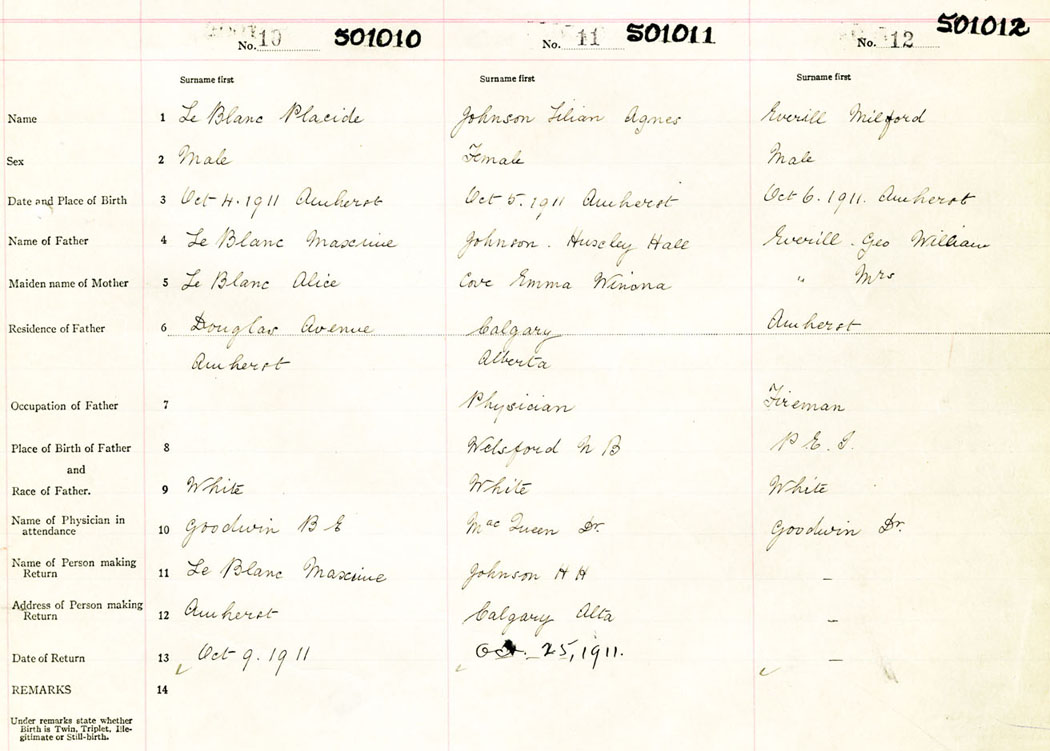 No. 10 501010 No. 11 501011 No. 12 501012
Surname first Surname first Surname first
Name 1 Le Blanc Placide Johnson Lilian Agnes Everill Milford
Sex 2 Male Female Male
Date and Place of Birth 3 Oct 4. 1911 Amherst Oct 5. 1911 Amherst Oct 6. 1911. Amherst
Name of Father 4 Le Blanc Maxime Johnson. Huxley Hall Everill. Geo William
Maiden name of Mother 5 Le Blanc Alice Cove Emma Winona " Mrs
Residence of Father 6 Douglas Avenue Calgary Amherst
Amherst Alberta
Occupation of Father 7 Physician Fireman
Place of Birth of Father 8 Welsford N B P. E. I.
and
Race of Father. 9 White White White
Name of Physician in
attendance 10 Goodwin B E Mac Queen Dr. Goodwin Dr.
Name of Person making
Return 11 Le Blanc Maxime Johnson H H –
Address of Person making
Return 12 Amherst Calgary Alta –
Date of Return 13 Oct 9. 1911 Oct. 25, 1911. –
REMARKS 14
Under remarks state whether
Birth is Twin, Triplet, Ille-
gitimate or Still-birth.